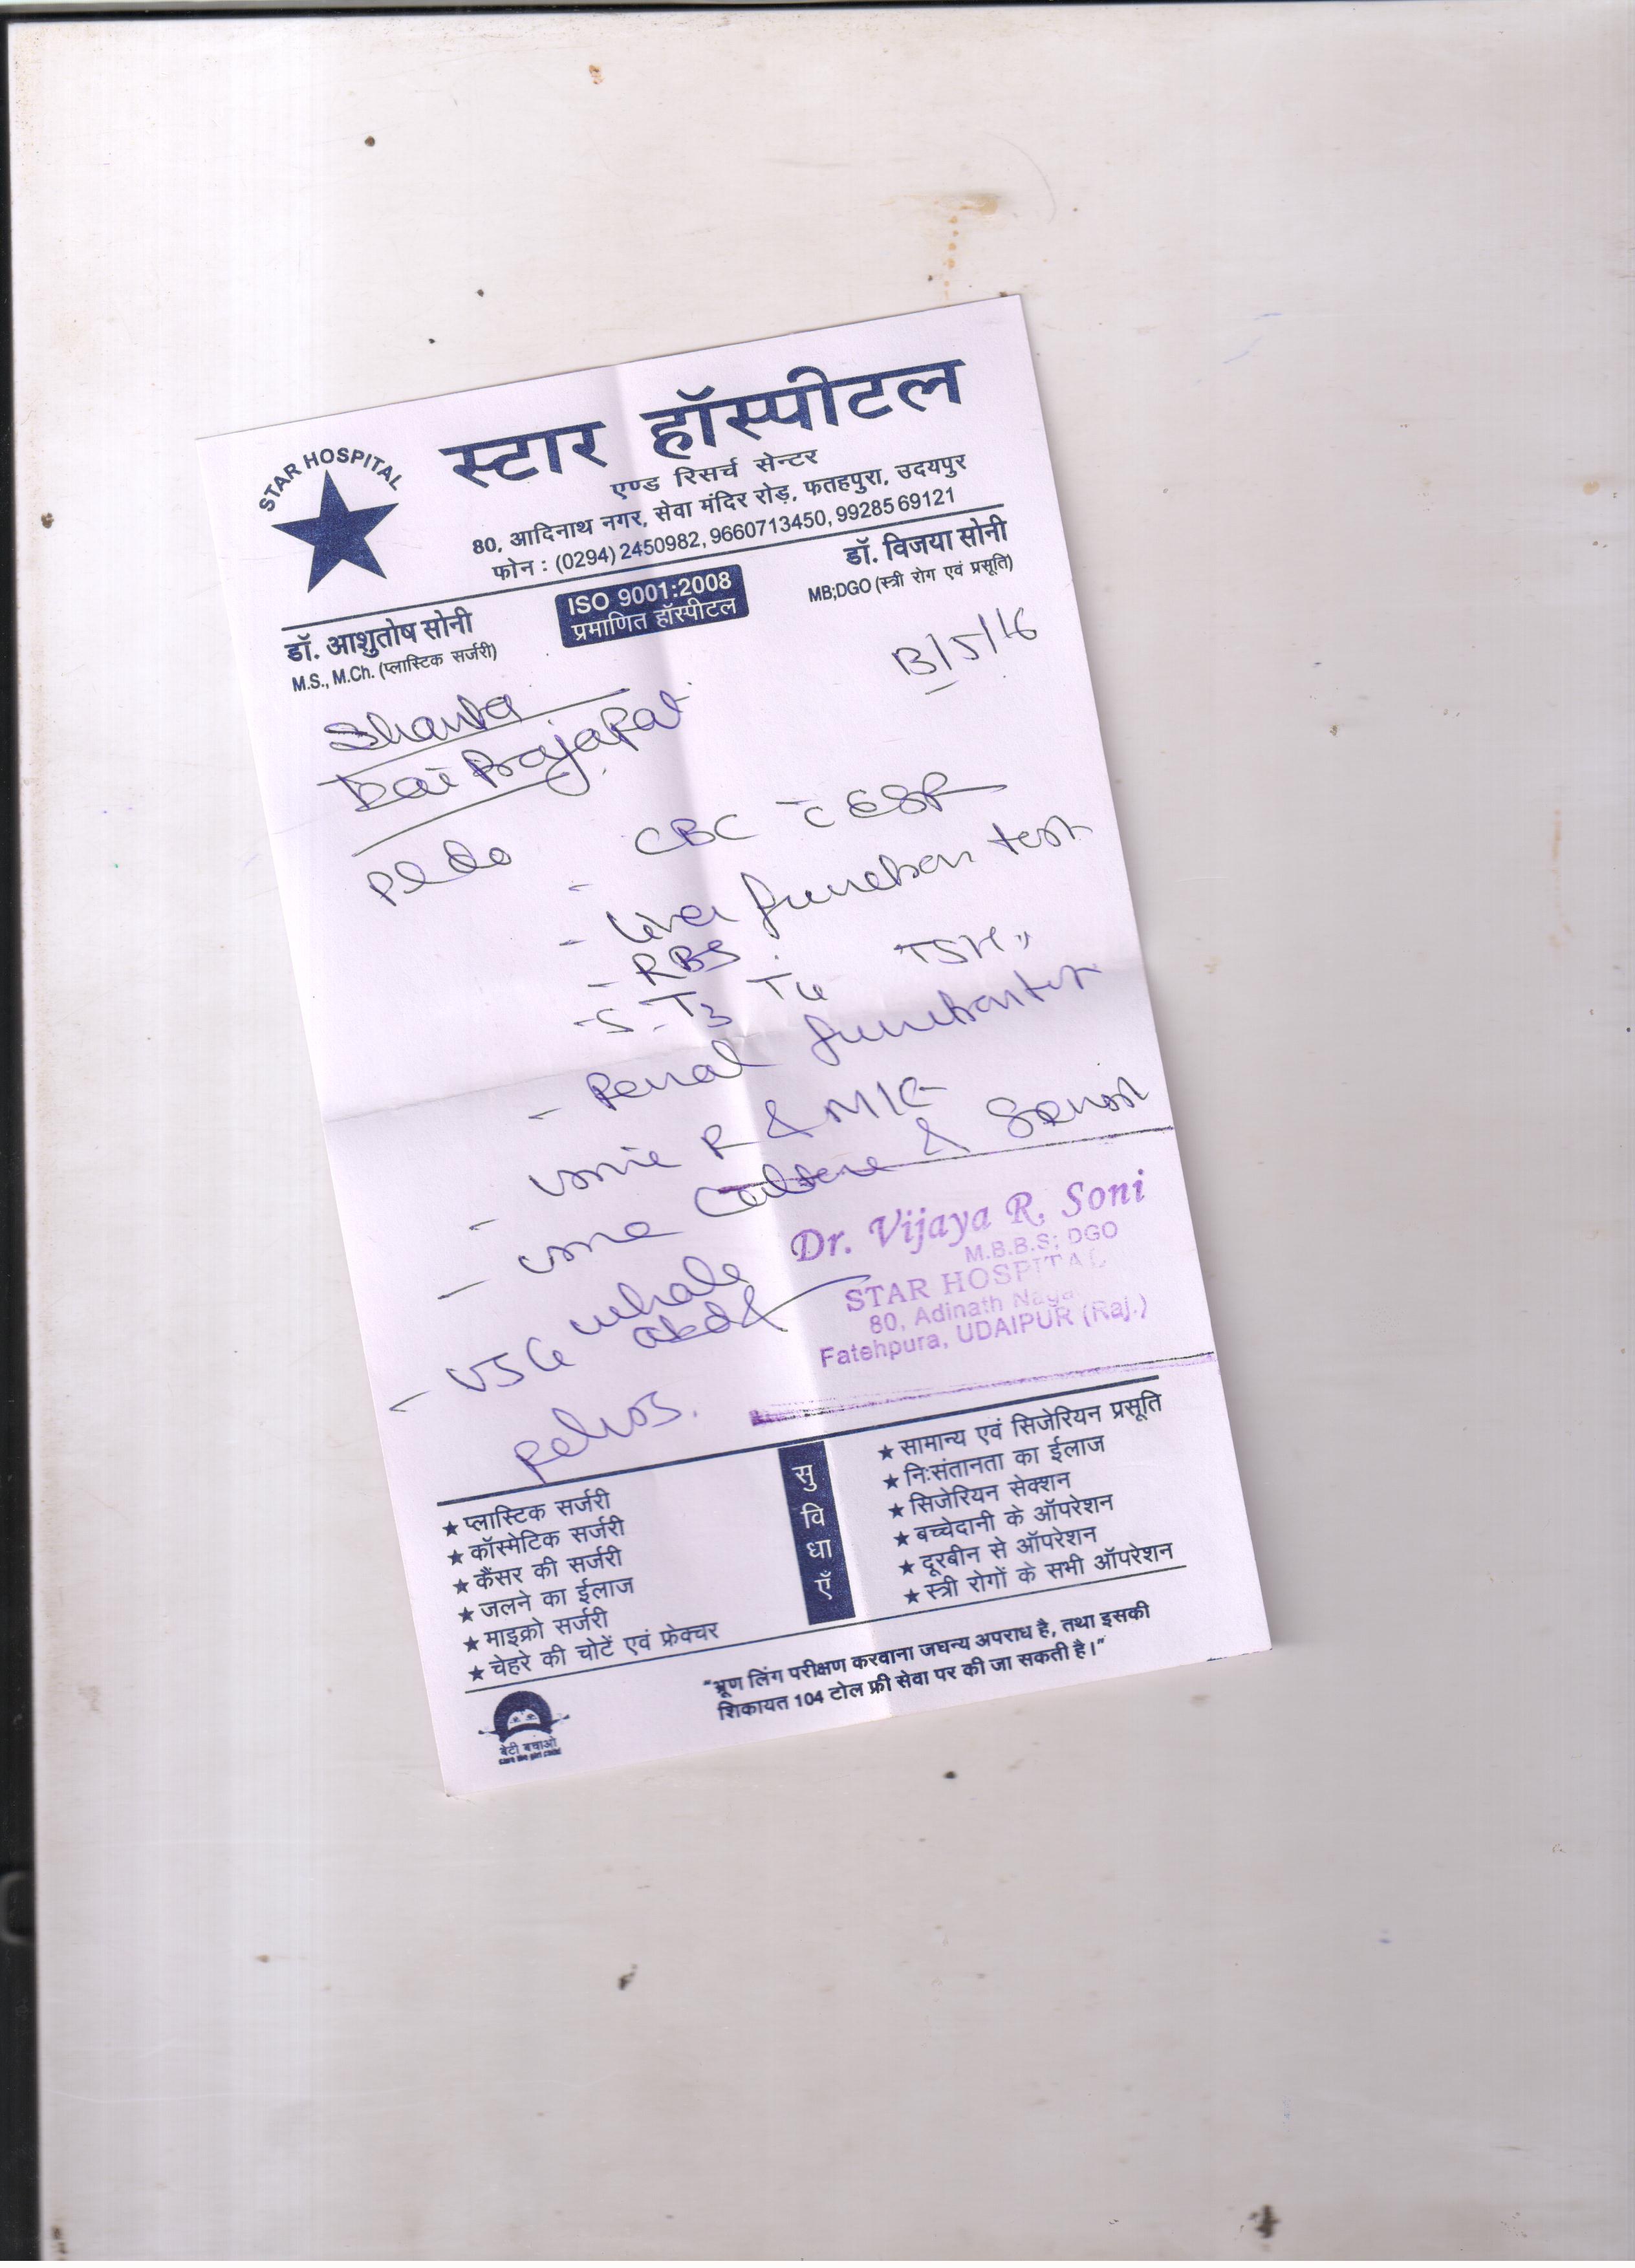 STAR HOSPITAL
स्टार हॉस्पीटल
एण्ड रिसर्च सेन्टर
80, आदिनाथ नगर, सेवा मंदिर रोड़, फतहपुरा, उदयपुर
फोन : (0294) 2450982, 9660713450, 99285 69121
डॉ. आशुतोष सोनी
M.S., M.Ch. (प्लास्टिक सर्जरी)
ISO 9001:2008
प्रमाणित हॉस्पीटल
डॉ. विजया सोनी
MB;DGO (स्त्री रोग एवं प्रसूति)
13/5/16
Shanta
Bai Prajapat
Pl do
- CBC c̄ ESR
- Liver function test
- RBS
- S. T3 T4 TSH
- Renal function test
- Urine R & M/E
- Urine Culture &
- USG whole abd &
pelvis.
Dr. Vijaya R. Soni
M.B.B.S; DGO
STAR HOSPITAL
80, Adinath Naga
Fatehpura, UDAIPUR (Raj.)
सुविधाएँ
★ प्लास्टिक सर्जरी
★ कॉस्मेटिक सर्जरी
★ कैंसर की सर्जरी
★ जलने का ईलाज
★ माइक्रो सर्जरी
★ चेहरे की चोटें एवं फ्रेक्चर
★ सामान्य एवं सिजेरियन प्रसूति
★ निःसंतानता का ईलाज
★ सिजेरियन सेक्शन
★ बच्चेदानी के ऑपरेशन
★ दूरबीन से ऑपरेशन
★ स्त्री रोगों के सभी ऑपरेशन
बेटी बचाओ
save the girl child
"भ्रूण लिंग परीक्षण करवाना जघन्य अपराध है, तथा इसकी
शिकायत 104 टोल फ्री सेवा पर की जा सकती है।"